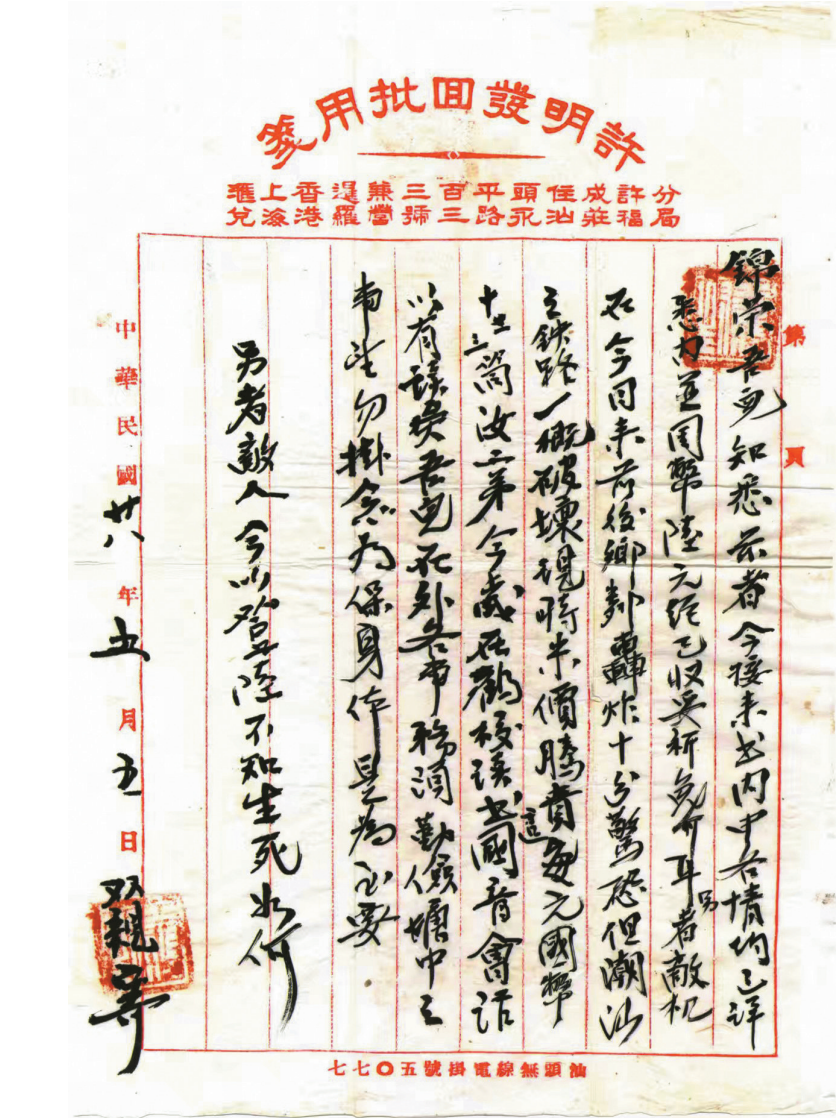 許明發回批用箋
分局許福成莊住汕頭永平路百三三號兼營暹羅香港上海滙兌
集 頁
錦榮吾兒知悉茲者今接来書內中各情均已詳
悉內並国幣陸元經已收妥祈免介耳另者敵机
在今日来前後鄉邻轟炸十分驚恐但潮汕
之鉄路一概破壞現時米價騰貴每元國幣
筒汝二弟今歲在鶴校讀書國音會話
以有讀矣吾兒在外各事務須勤儉塘中之
事望勿掛念為保身体是為至要
另者敵人今以登陸不知生死如何
中華民國廿八年五月五日 双親寄
汕頭無線電掛號五〇七七